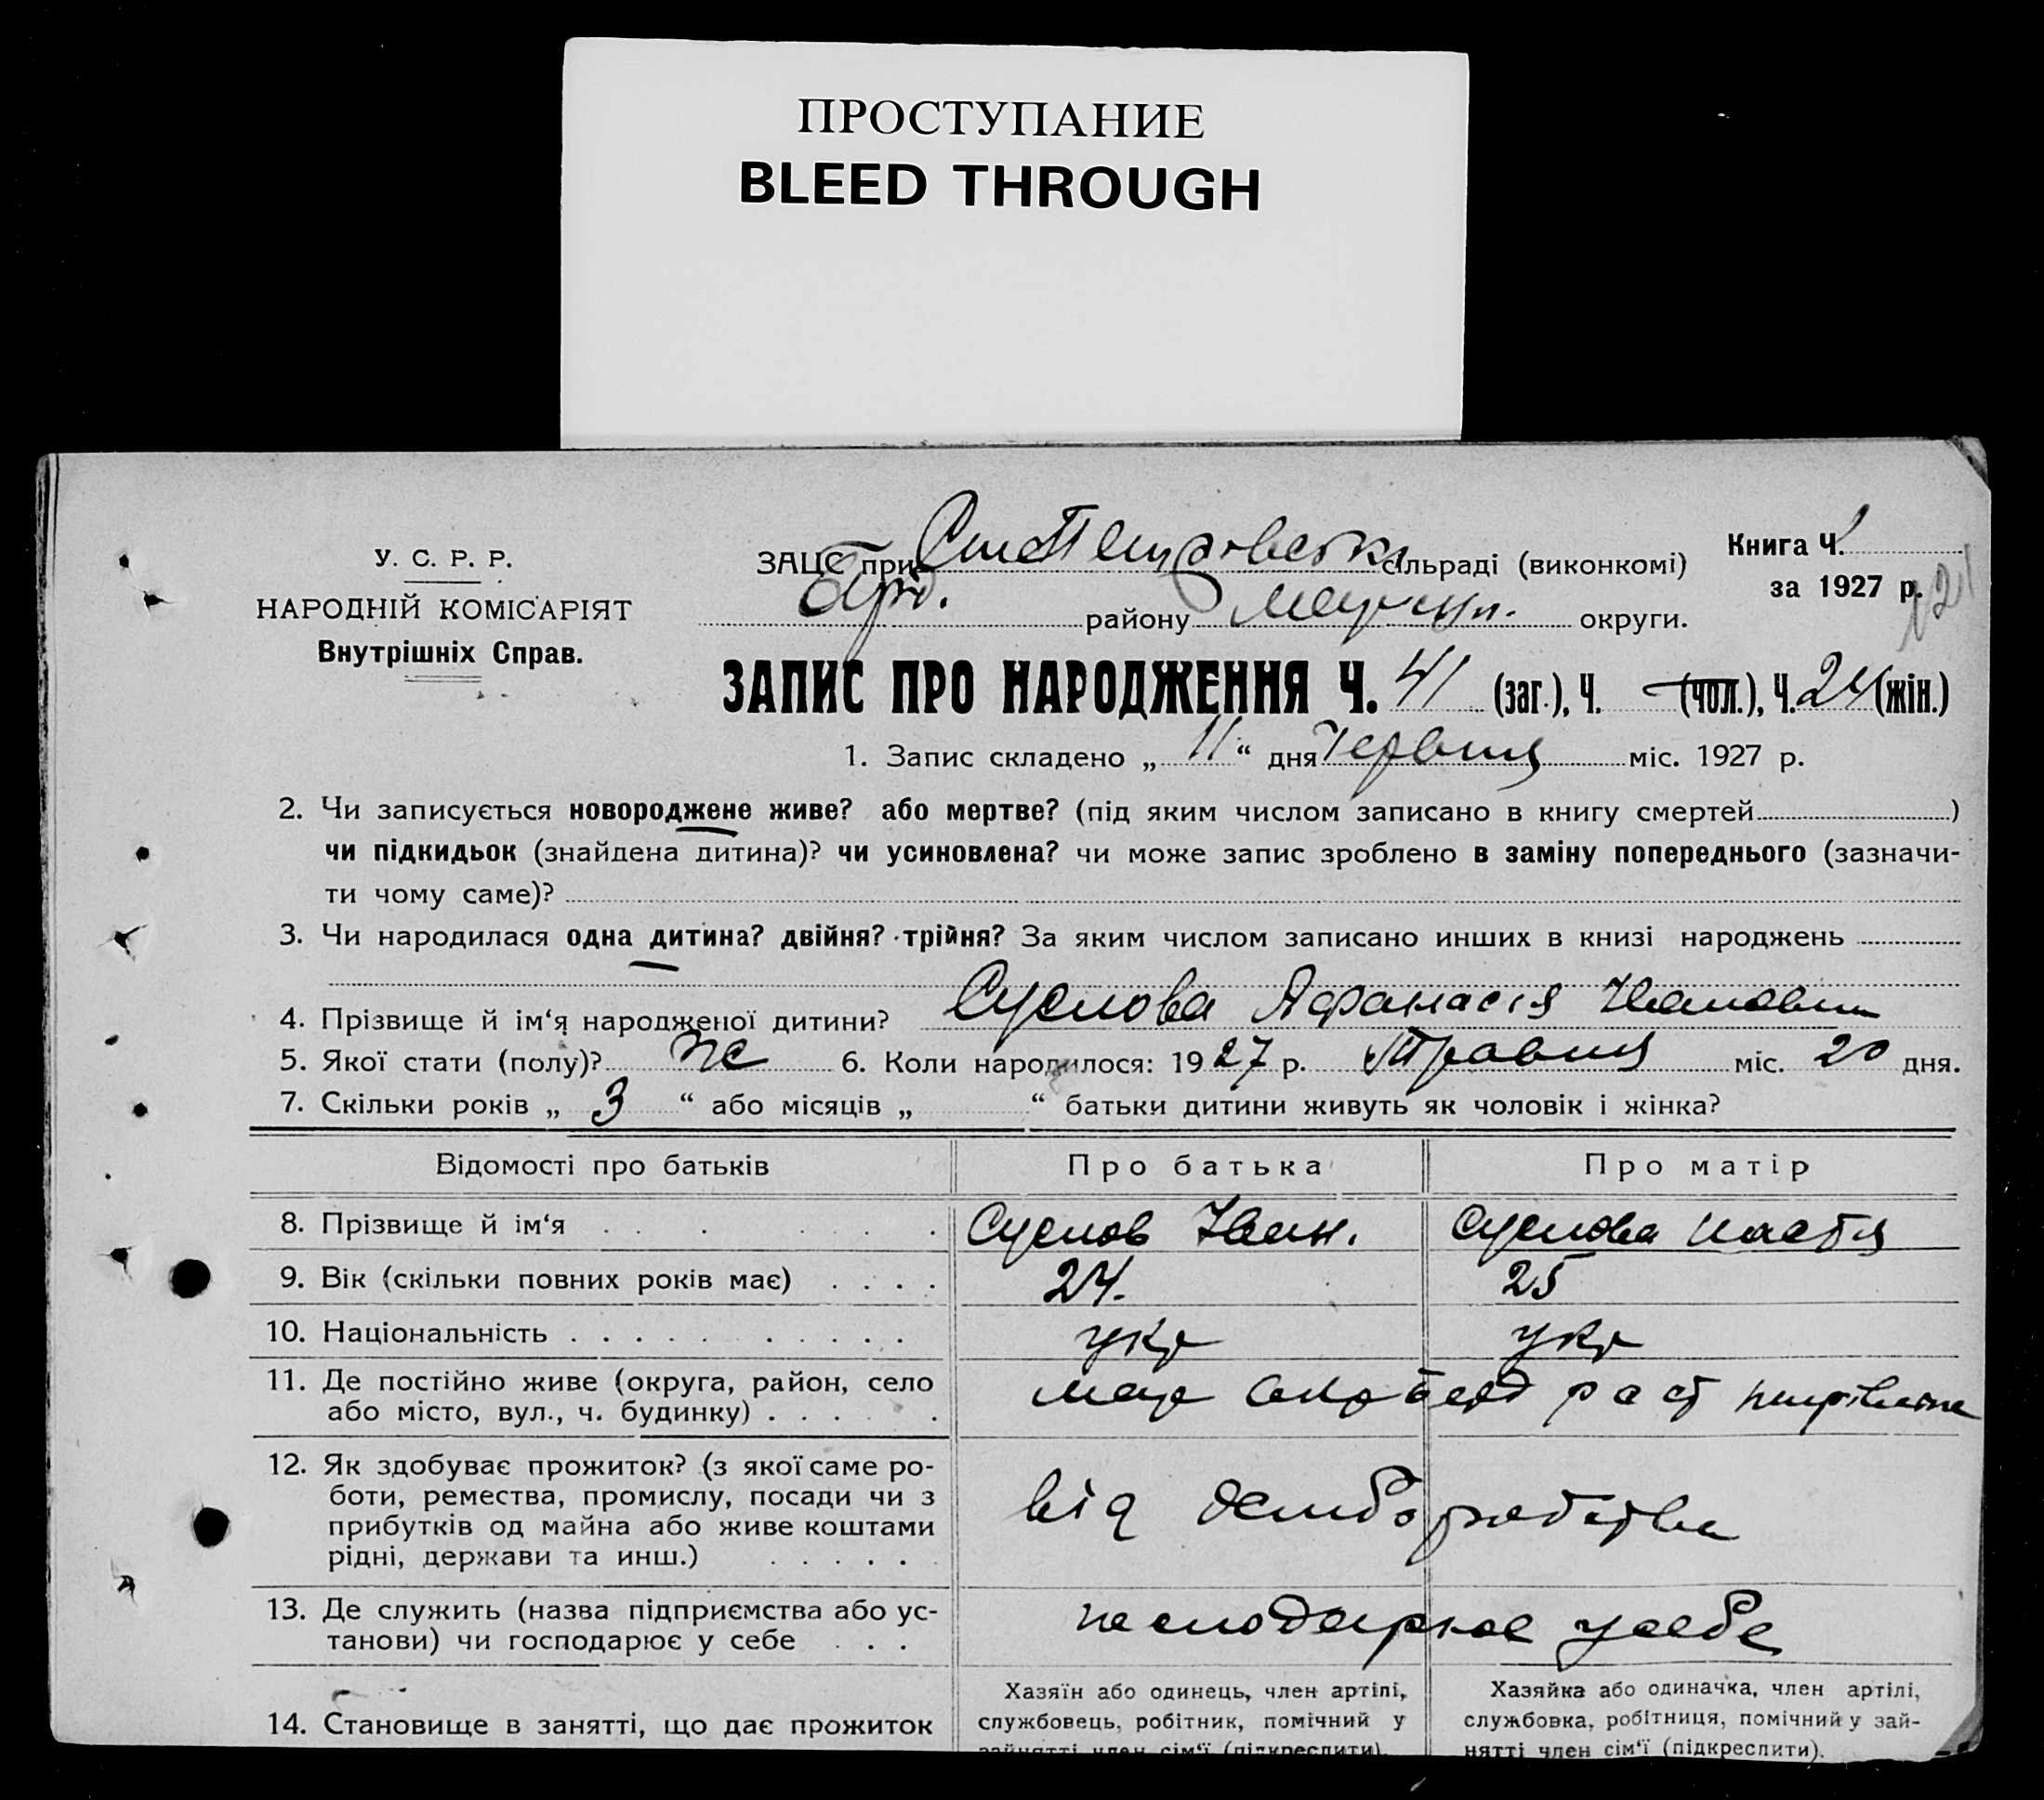 ПРОСТУПАНИЕ
BLEED THROUGH
У. С. Р. Р.
НАРОДНІЙ КОМІСАРІЯТ
Внутрішніх Справ.
ЗАЦС при сільраді (виконкомі)
Книга Ч. 1
за 1927 р.
району округи.
ЗАПИС ПРО НАРОДЖЕННЯ Ч. 41 (заг.), Ч. — (чол.), Ч. (жін.)
1. Запис складено „ 11 “ дня Червця міс. 1927 р.
2. Чи записується новороджене живе? або мертве? (під яким числом записано в книгу смертей )
чи підкидьок (знайдена дитина)? чи усиновлена? чи може запис зроблено в заміну попереднього (зазначи-
ти чому саме)?
3. Чи народилася одна дитина? двійня? трійня? За яким числом записано инших в книзі народжень
4. Прізвище й ім‘я народженої дитини? Суслова Афанасія Ивановн
5. Якої стати (полу)? ж 6. Коли народилося: 1927 р. Травця міс. 20 дня.
7. Скільки років „ 3 “ або місяців „ “ батьки дитини живуть як чоловік і жінка?
Відомості про батьків Про батька Про матір
8. Прізвище й ім‘я Суслов Иван. Суслова Настя
9. Вік (скільки повних років має) 24. 25
10. Національність укр укр
11. Де постійно живе (округа, район, село
або місто, вул., ч. будинку)
12. Як здобуває прожиток? (з якої саме ро-
боти, ремества, промислу, посади чи з
прибутків од майна або живе коштами
рідні, держави та инш.)
від
13. Де служить (назва підприємства або ус-
танови) чи господарює у себе
у себе
14. Становище в занятті, що дає прожиток
Хазяїн або одинець, член артілі,
службовець, робітник, помічний у
зайнятті член сім‘ї (підкреслити).
Хазяйка або одиначка, член артілі,
службовка, робітниця, помічний у зай-
нятті член сім‘ї (підкреслити).